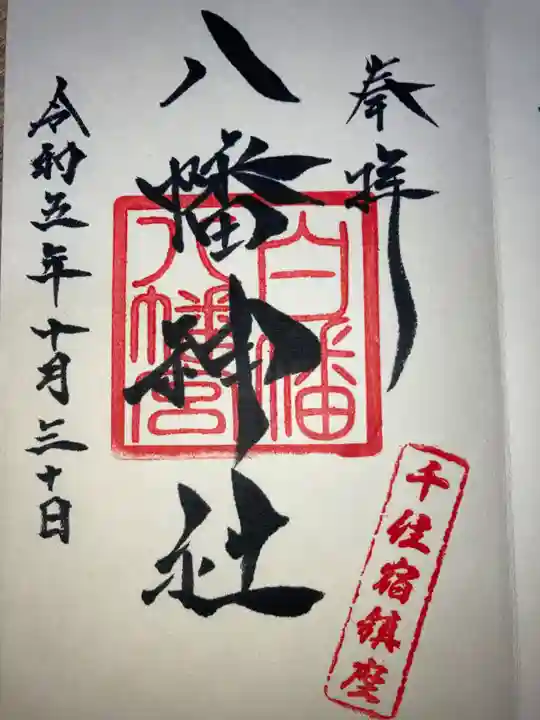 奉拝
白幡
八幡宮
八幡神社
令和五年十月三十日
千住宿鎮座